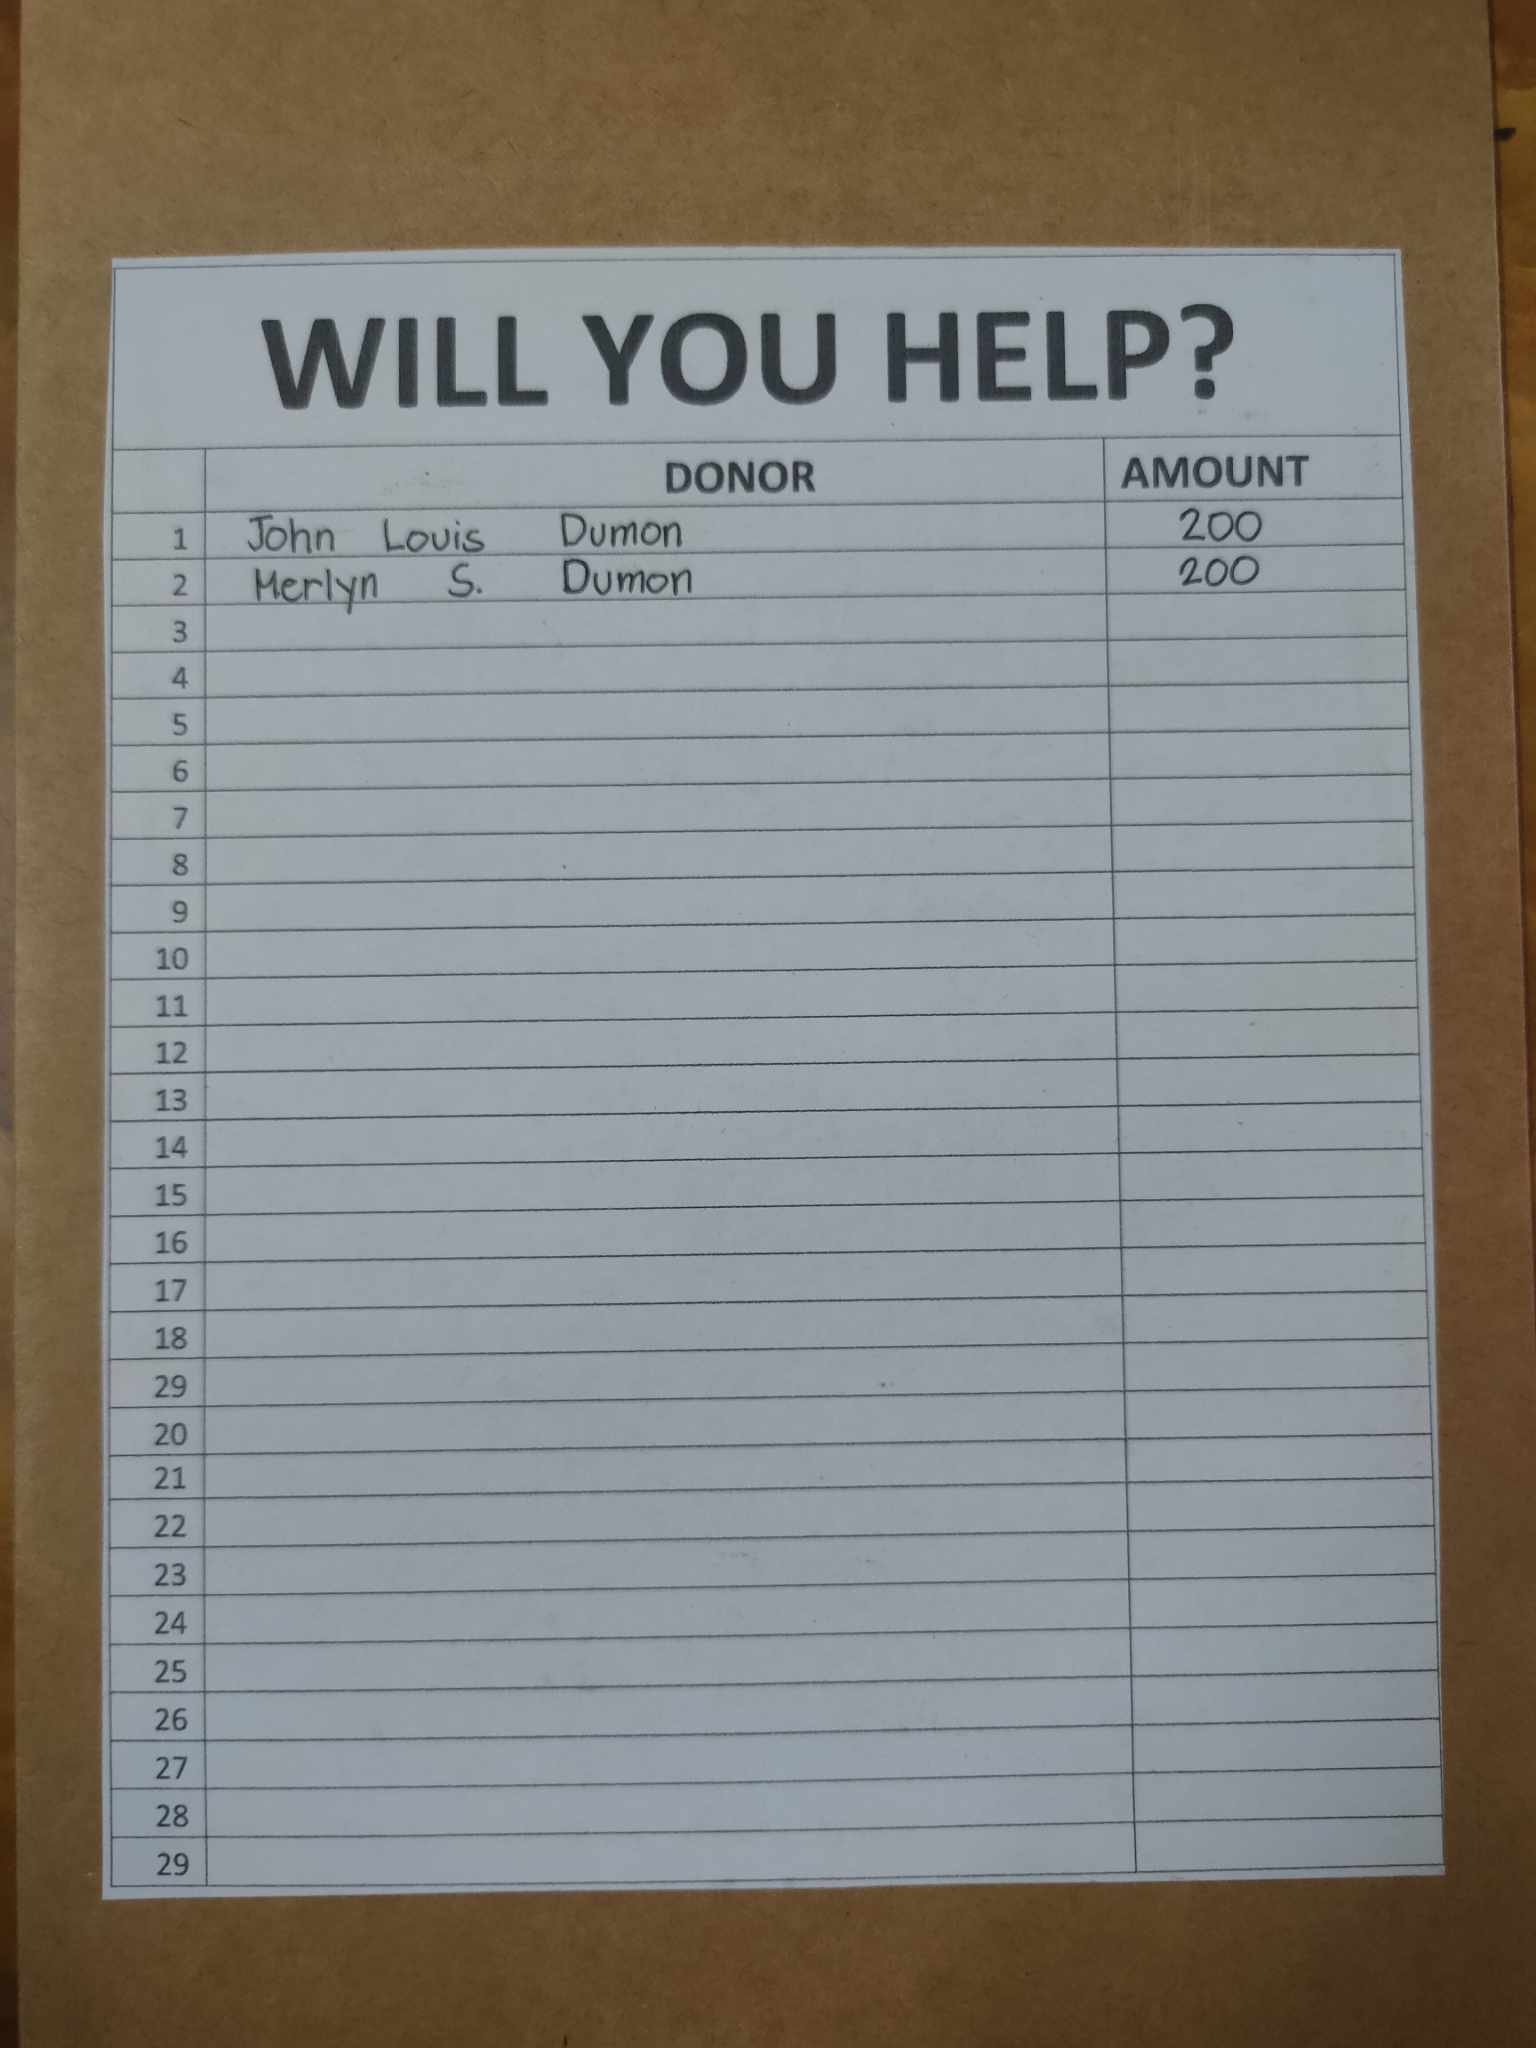 WILL YOU HELP?
DONOR AMOUNT
1 John Louis Dumon 200
2 Merlyn S. Dumon 200
3
4
5
6
7
8
9
10
11
12
13
14
15
16
17
18
29
20
21
22
23
24
25
26
27
28
29